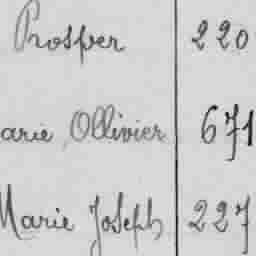 Prosper 220
arie Ollivier 671
Marie Joseph 227